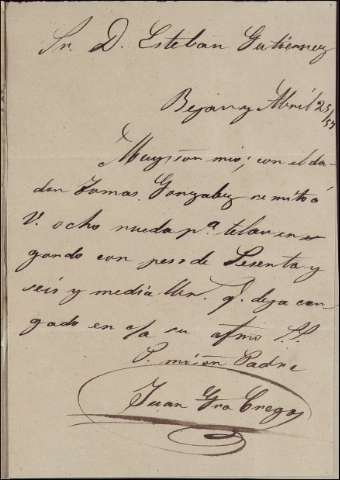 Sr. D. Esteban Gutierrez
Bejar y Abril 25/57
Muy Sor mio; con el da-
dor Tomas Gonzalez remito á
V. ocho rueda pª telar en
gando con peso de Sesenta y
seis y media lbr. q.e deja car
gado en c/a su afmo S.S.
P. mi Sor Padre
Juan Gra Crego